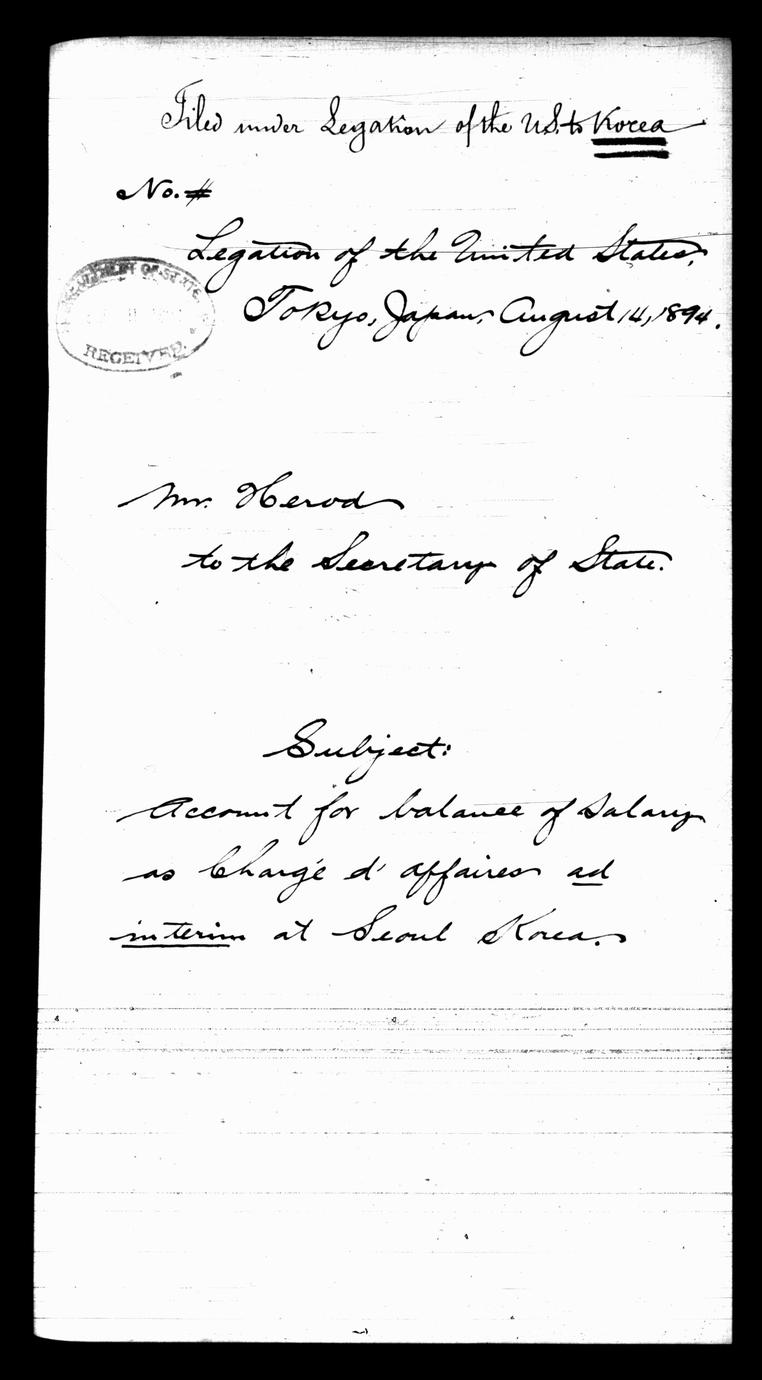 Filed under Legation of the U.S. to Korea
No. #
Legation of the United States,
Tokyo, Japan, August 14, 1894.
DEPARTMENT OF STATE
RECEIVED.
Mr. Herod
to the Secretary of State.
Subject:
Account for balance of Salary
as Chargé d' affaires ad
interim at Seoul Korea.